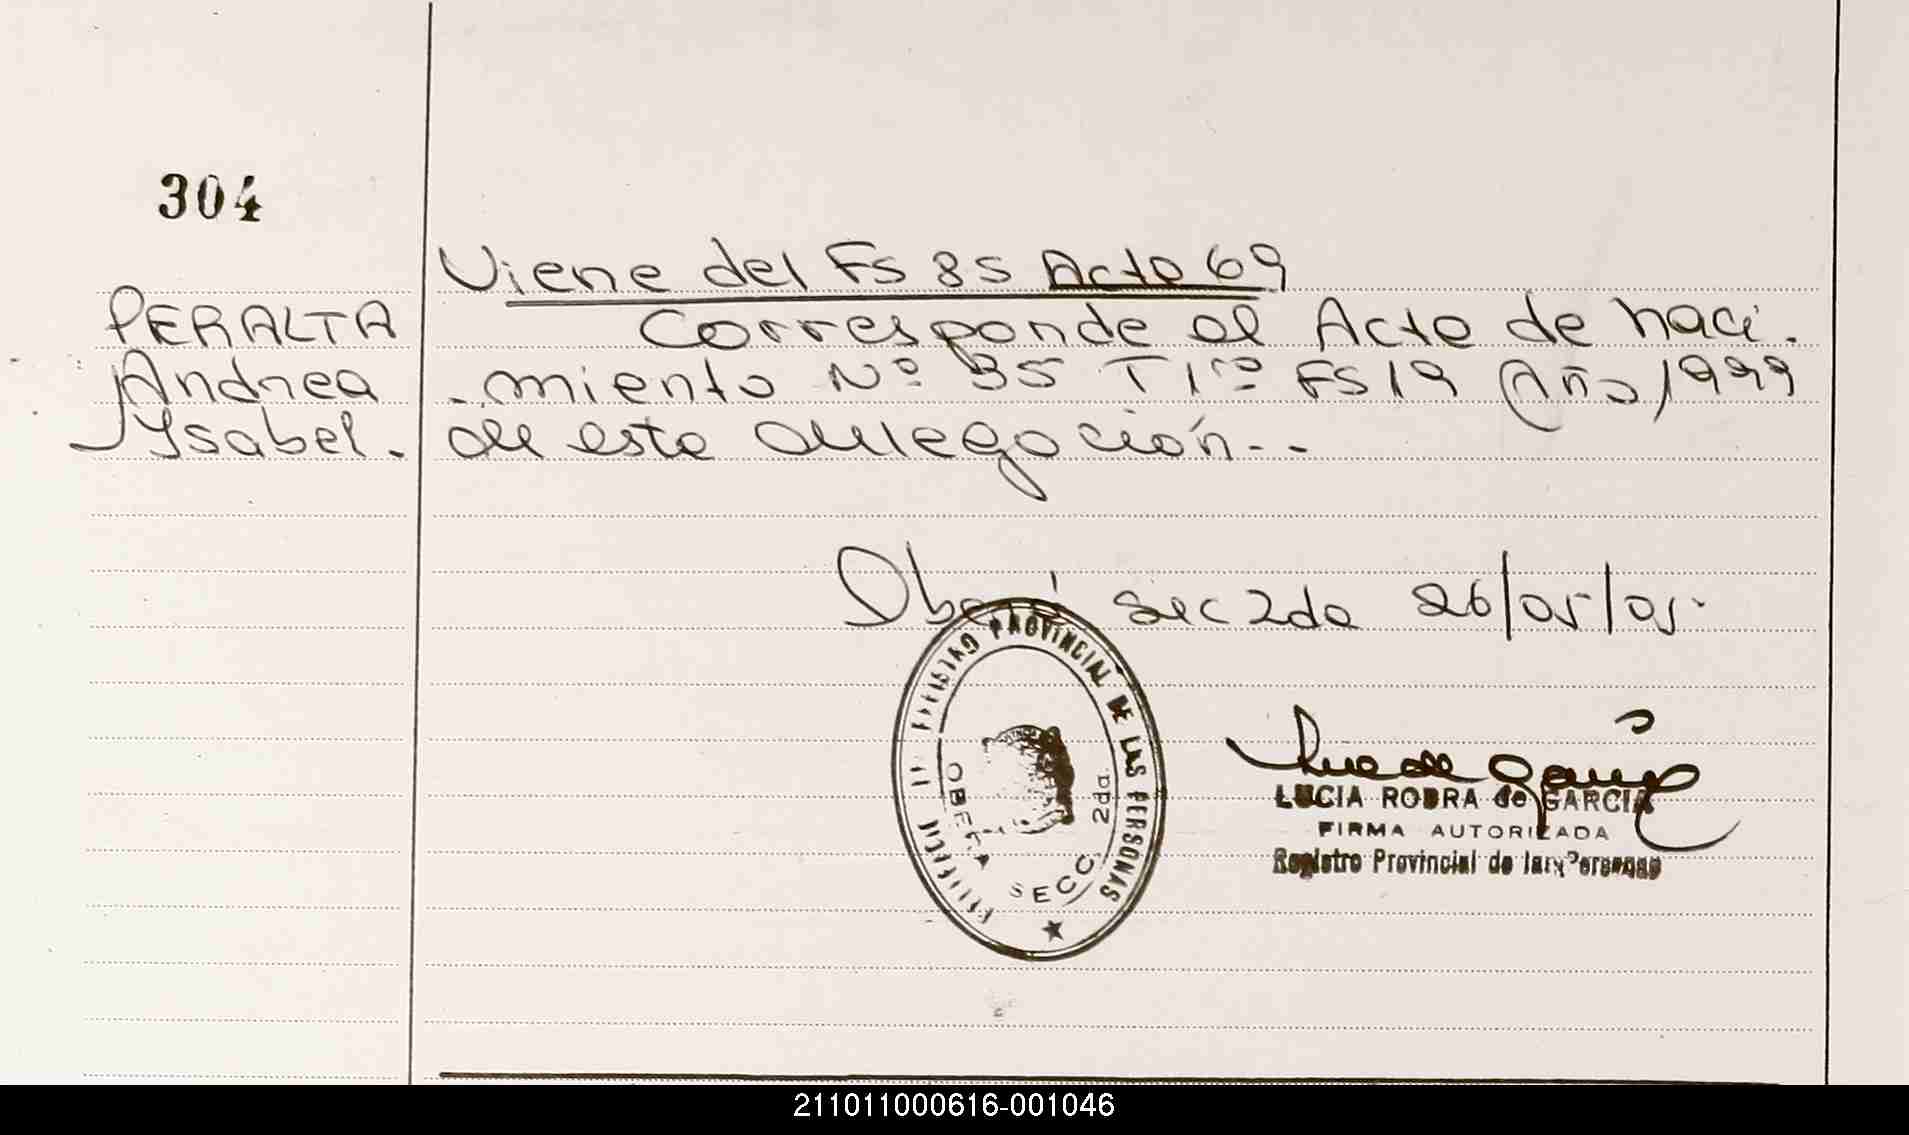 304
Viene del Fs 85 Acta 69
PERALTA
Andrea
Ysabel.
Corresponde al Acta de naci.
-miento Nº 35 T 1ro Fs 19 Año/1999
de esta delegación--
Oberá Sec 2da 26/05/05.
REGISTRO PROVINCIAL DE LAS PERSONAS
OBERA SECC. 2da.
LUCIA ROBRA de GARCIA
FIRMA AUTORIZADA
Registro Provincial de las Personas
211011000616-001046